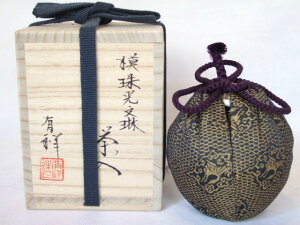 模珠光文琳
茶入
有祥